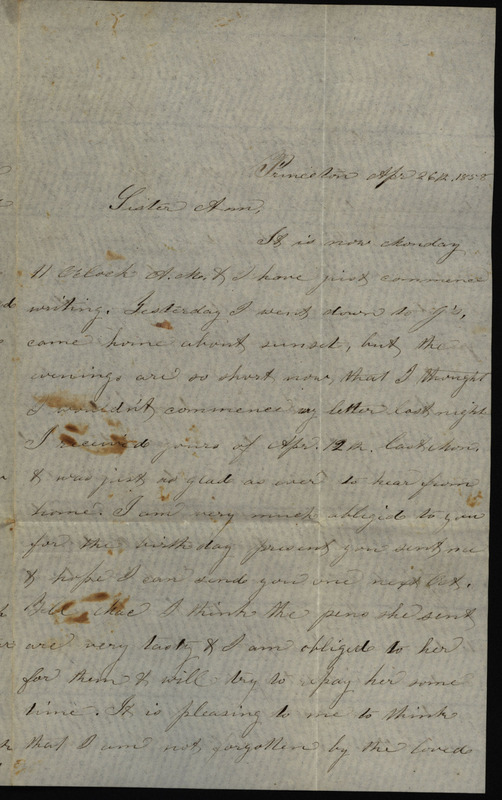 Princeton Apr 26th. 1858
Sister Ann,
It is now Monday
11 Oclock A.M. & I have just commence
writing. Yesterday I went down to J's,
came home about sunset, but the
evenings are so short now, that I thought
I wouldn't commence my letter last night
I received yours of Apr. 12th. last Mon.
& was just as glad as ever to hear from
home. I am very much obliged to you
for the birth day present you sent me
& hope I can send you one next Oct.
Tell Mae I think the pens she sent
are very tasty & I am obliged to her
for them & will try to repay her some
time. It is pleasing to me to think
that I am not forgotten by the loved